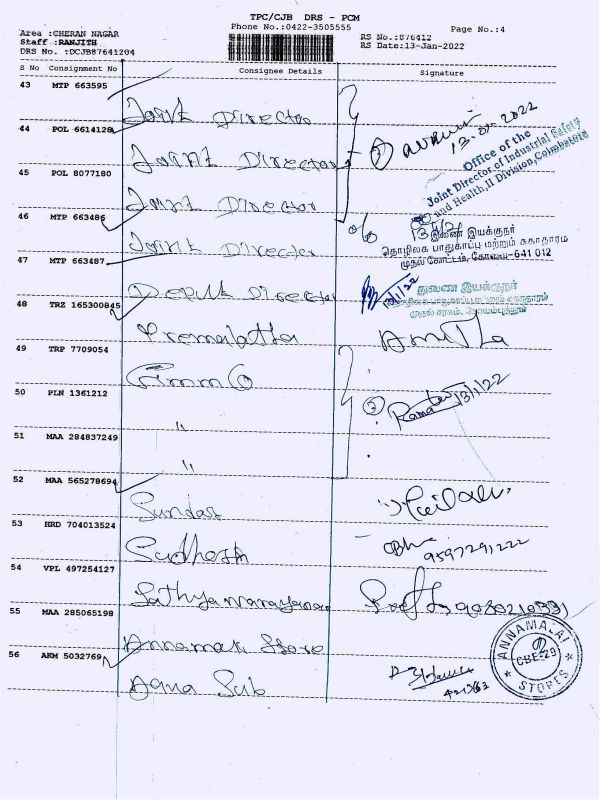 TPC/CJB DRS - PCM
Phone No.:0422-3505555
Page No.:4
Area :CHERAN NAGAR
Staff :RANJITH
DRS No. :DCJB87641204
RS No.:876412
RS Date:13-Jan-2022
S No Consignment No Consignee Details Signature
43 MTP 663595
Joint Director
44 POL 6614128
Joint Director
13.01.2022
Office of the
Joint Director of Industrial Safety
and Health,II Division,Coimbatore
45 POL 8077180
Joint Director
46 MTP 663486
Joint Director
இணை இயக்குநர்
தொழிலக பாதுகாப்பு மற்றும் சுகாதாரம்
முதல் கோட்டம், கோவை-641 012
47 MTP 663487
Deputi Director
துணை இயக்குநர்
48 TRZ 165300845
Premalatha Amitha
49 TRP 7709054
Gimmo
50 PLN 1361212
"
3 Rama 13/1/22
51 MAA 284837249
"
52 MAA 565278694
Sundar
53 HRD 704013524
Sudhesh
9597291222
54 VPL 497254127
Sathya narayanan
55 MAA 285065198
Annamalai Store
ANNAMALAI
CBE-29
STORES
56 AKM 5032769
Dana Sub